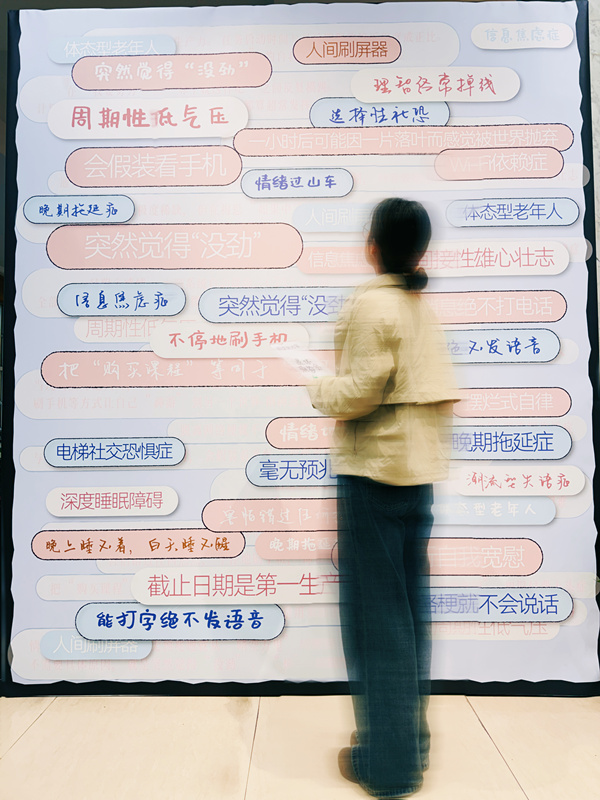 体态型老年人
人间刷屏器
信息焦虑症
突然觉得“没劲”
理智经常掉线
周期性低气压
选择性社恐
一小时后可能因一片落叶而感觉被世界抛弃
会假装看手机
依赖症
情绪过山车
晚期拖延症
人间刷
体态型老年人
突然觉得“没劲”
信息焦
间接性雄心壮志
信息焦虑症
突然觉得“没劲
绝不打电话
周期性低
不停地刷手机
不发语音
把“购买课程”等同于
摆烂式自律
情绪
电梯社交恐惧症
晚期拖延症
毫无预兆
深度睡眠障碍
潮流型失语症
害怕错过任何
态型老年人
晚上睡不着，白天睡不醒
晚期拖延
我宽慰
截止日期是第一生产
络梗就不会说话
能打字绝不发语音
人间刷屏器
低气压